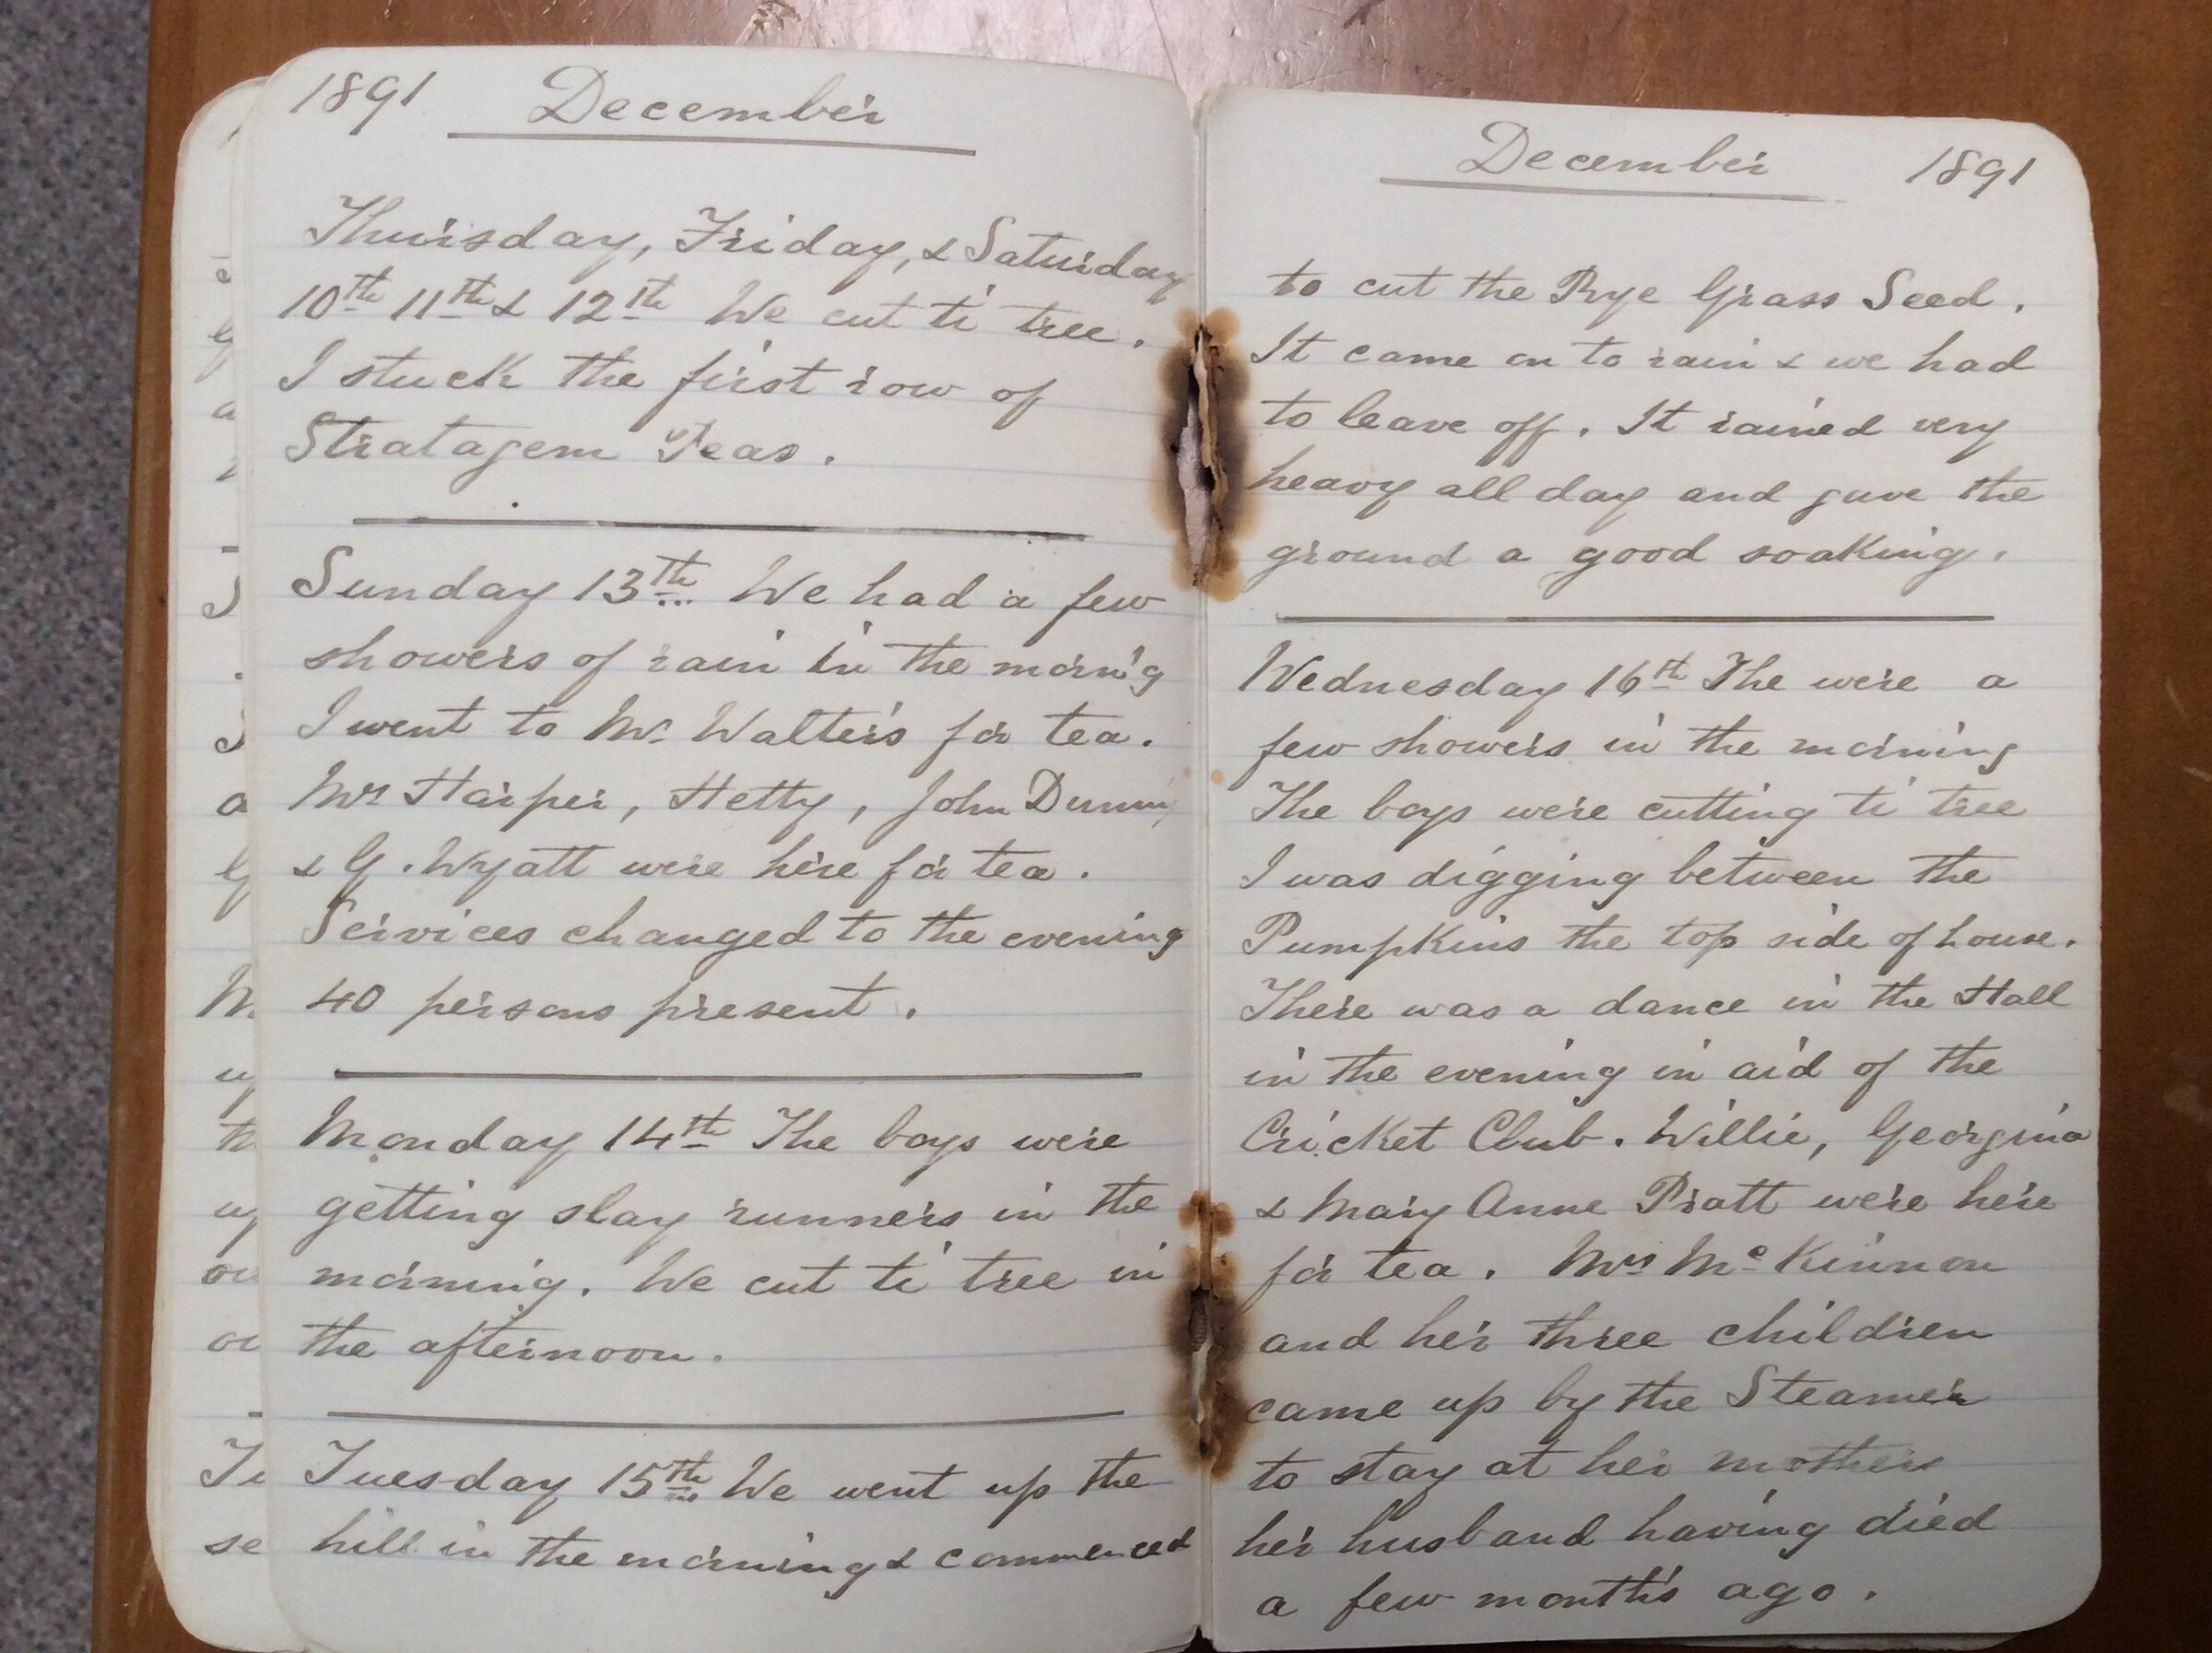 1891 December
Thursday, Friday, & Saturday
10th 11th & 12th We cut ti tree.
I stuck the first row of
Stratagem Peas.
Sunday 13th We had a few
showers of rain in the morn'g
I went to Mr. Walter's for tea.
Mrs Harper, Hetty, John
& G. Wyatt were here for tea.
Services changed to the evening
40 persons present.
Monday 14th The boys were
getting slay runners in the
morning. We cut ti tree in
the afternoon.
Tuesday 15th We went up the
hill in the morning & commenced
December 1891
to cut the Rye Grass Seed.
It came on to rain & we had
to leave off. It rained very
heavy all day and gave the
ground a good soaking.
Wednesday 16th The were a
few showers in the morning
The boys were cutting ti tree
I was digging between the
Pumpkins the top side of house.
There was a dance in the Hall
in the evening in aid of the
Cricket Club. Willie, Georgina
& Mary Anne Pratt were here
for tea. Mrs McKinnon
and her three children
came up by the Steamer
to stay at her mothers
her husband having died
a few month's ago.